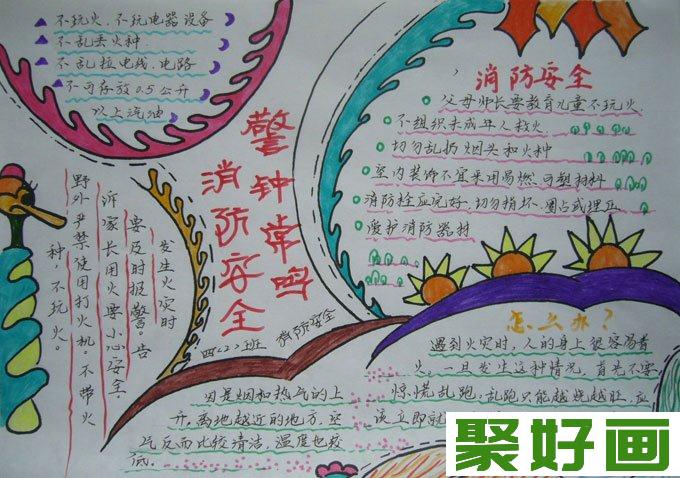 不玩火,不玩电器设备
不乱丢火种.
不乱拉电线,电路
不可存放0.5公升
以上汽油
警钟常鸣
消防安全
四<2>班
消防安全
消防安全
父母师长要教育儿童不玩火
不组织未成年人救火
切勿乱扔烟头和火种
室内装饰不宜采用易燃、可塑材料
消防栓应完好,切勿损坏、圈占或埋压
爱护消防器材
发生火灾时
要及时报警。告
诉家长用火要小心安全
野外严禁使用打火机。不带火
种,不玩火。
因是烟和热气的上
升。离地越近的地方,空
气反而比较清洁,温度也较
低。
怎么办?
遇到火灾时,人的身上很容易着
火,一旦发生这种情况,首先不要
惊慌乱跑,乱跑只能越烧越旺,应
该立即就
聚好画